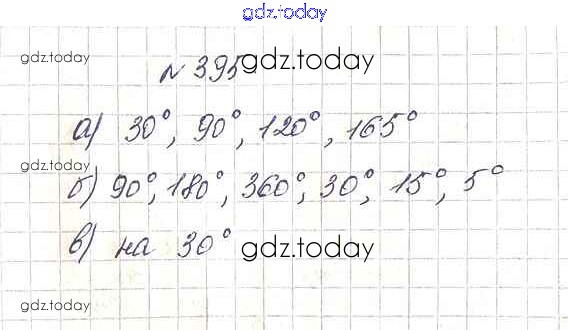 gdz.today
gdz.today
№ 395 gdz.today
а) 30°, 90°, 120°, 165°
gdz.today gdz.today
б) 90°, 180°, 360°, 30°, 15°, 5°
в) на 30° gdz.today
gdz.today